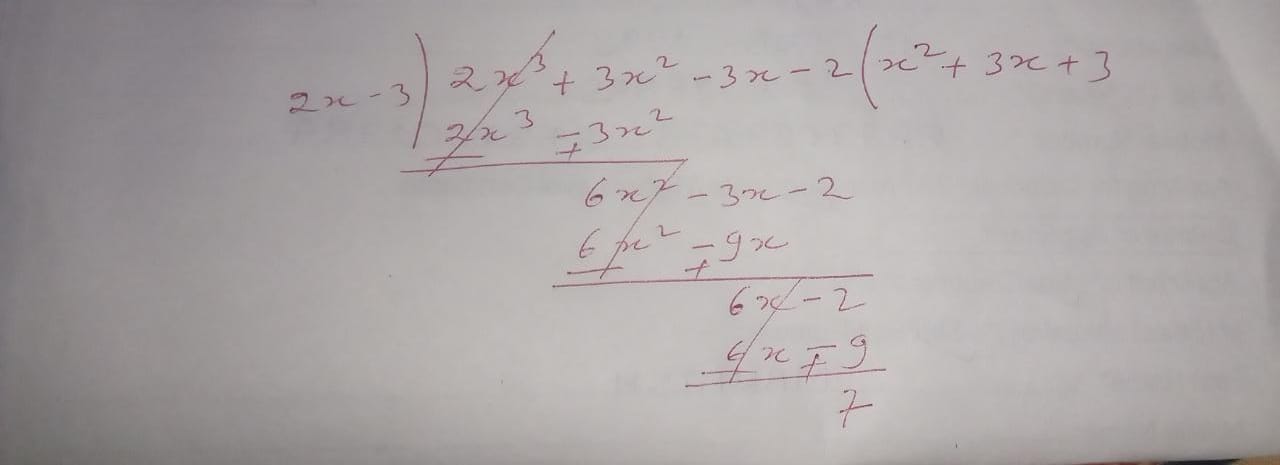 2x - 3) 2x³ + 3x² - 3x - 2 (x² + 3x + 3
2x³ - 3x²
- +
6x² - 3x - 2
6x² - 9x
- +
6x - 2
6x - 9
- +
7